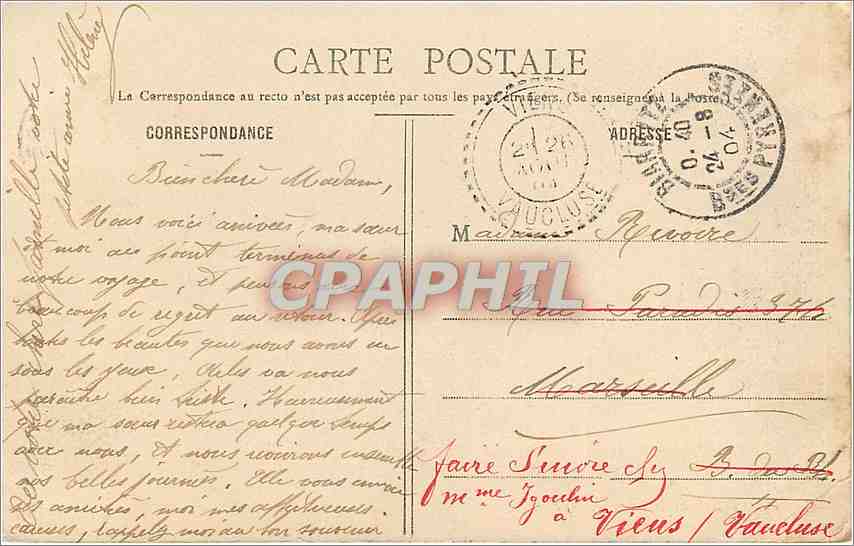 CARTE POSTALE
La Correspondance au recto n'est pas acceptée par tous les pays étrangers. (Se renseigner à la Poste)
CORRESPONDANCE
ADRESSE
VIENS
26
VAUCLUSE
BIARRITZ
BSES PYRENEES
24 - 8
04
Bien chère Madame,
Nous voici arrivées, ma sœur
et moi au point terminus de
notre voyage, et pensons
beaucoup de regret au retour. Après
toutes les beautés que nous avons eu
sous les yeux, Arles va nous
paraître bien triste. Heureusement
que ma sœur restera quelque temps
avec nous, et nous revivrons ensemble
nos belles journées. Elle vous envoie
ses amitiés, moi mes affectueuses
caresses, rappelez moi au bon souvenir
de votre famille votre
petite amie Hélène
Madame Rivoire
Rue Paradis 376
Marseille
B. du Rh.
faire suivre chez
Mme Igoulin
à Viens / Vaucluse
CPAPHIL